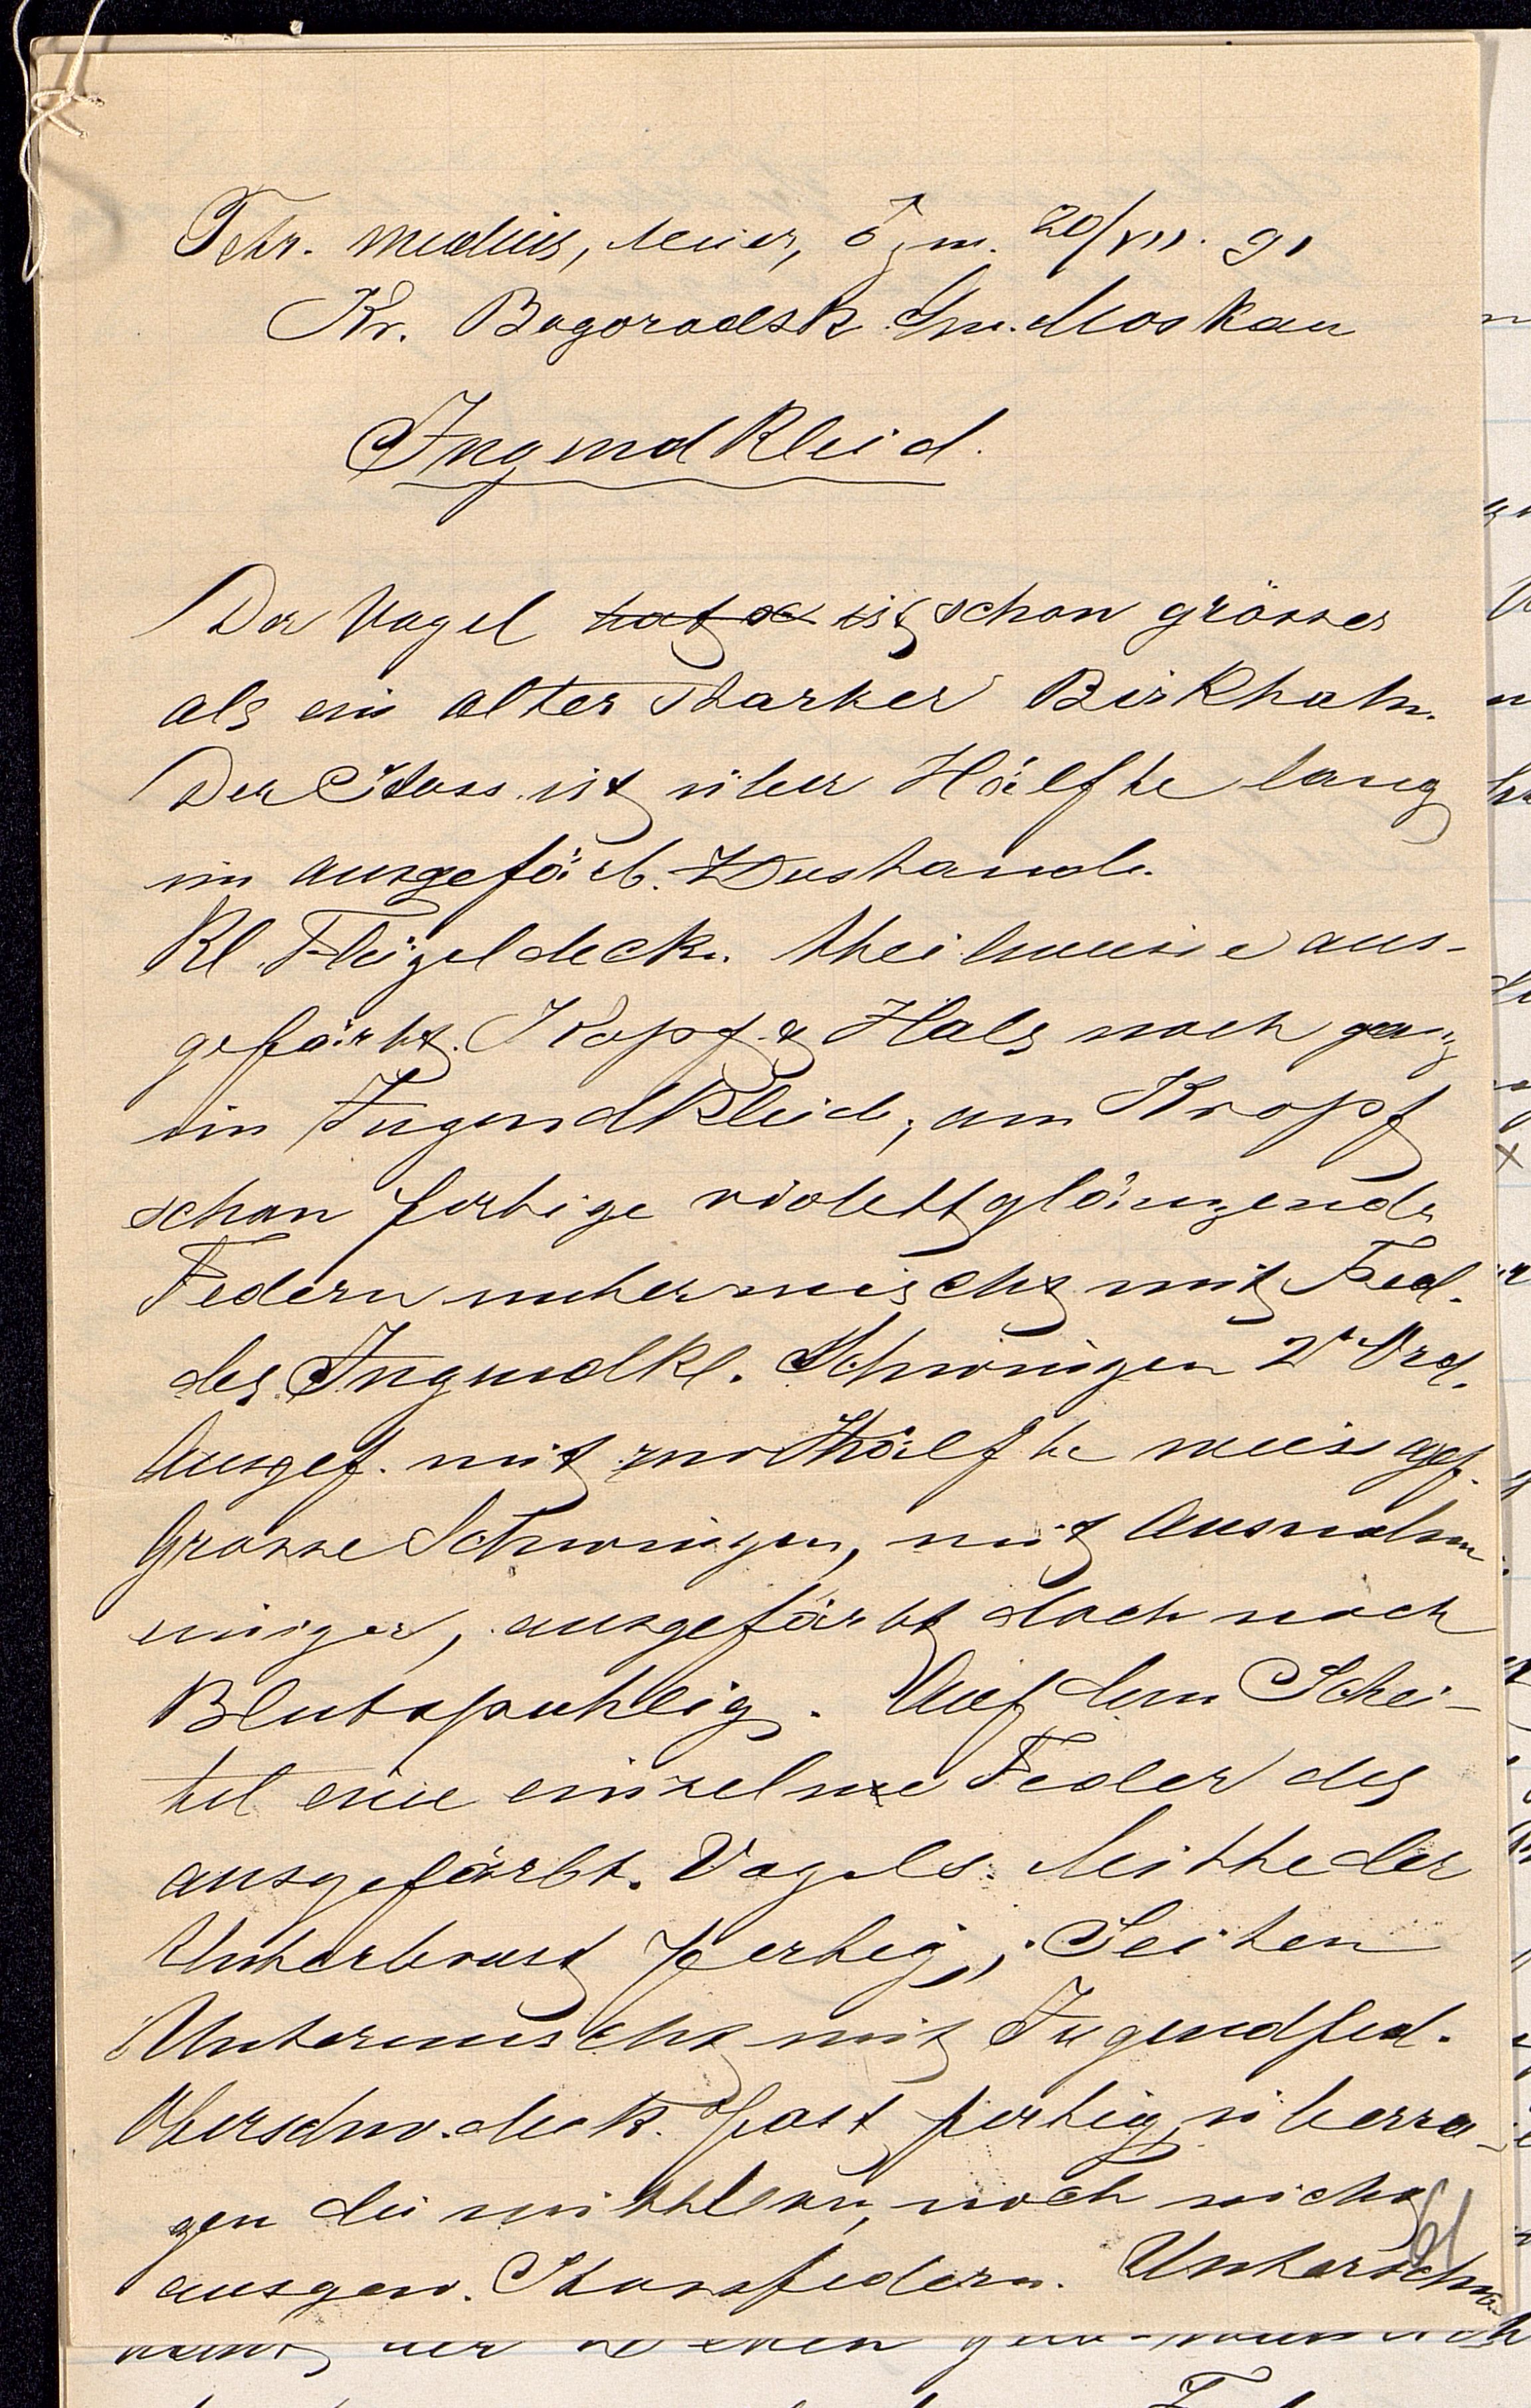 Tetr. medius, Meier, ♂ j m. 20/VII. 91
Kr. Bogorodsk Gu. Moskau
Jugendkleid.
Der Vogel hat sc ist schon grösser
als ein alter starker Birkhahn.
Der Stoss ist über Hälfte lang
im ausgefärb. Zustande.
Kl. Flügeldeck. theilweise aus-
gefärbt. Kopf & Hals noch ganz
im Jugendkleid, am Kropf
schon fertige violettglänzende
Federn untermischt mit Fed.
des Jugendkl. Schwingen 2r Ord.
Ausgef. mit zur Hälfte
Grosse Schwingen, mit Ausnahm
einiger, ausgefärbt doch noch
Blutspuhlig. Auf dem Schei-
tel eine einzelne Feder des
ausgefärbt. Vogels. Mitthe der
Unterbrust fertig, Seiten
Untermischt mit Jugendfed.
Oberschw.deck. fast fertig, überra-
gen die mitthleren, noch nicht
ausgew. Stossfedern. Unterschw.
61